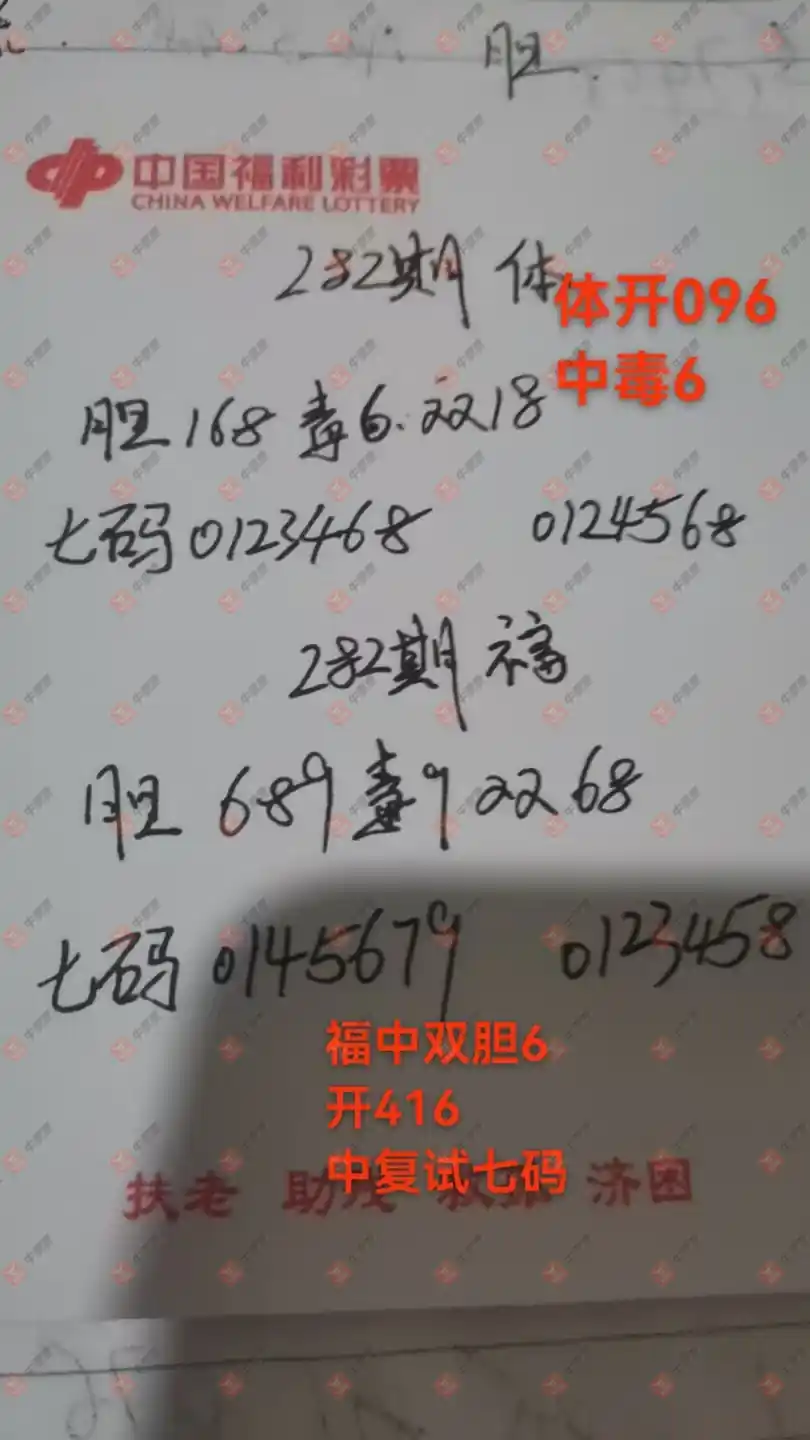 胆.
中国福利彩票
CHINA WELFARE LOTTERY
282期 体
体开096
中毒6
胆168 毒6.双18
七码0123468 0124568
282期 福
胆 689毒9双68
七码 0145679 0123458
福中双胆6
开416
中复试七码
扶老 助残 济困